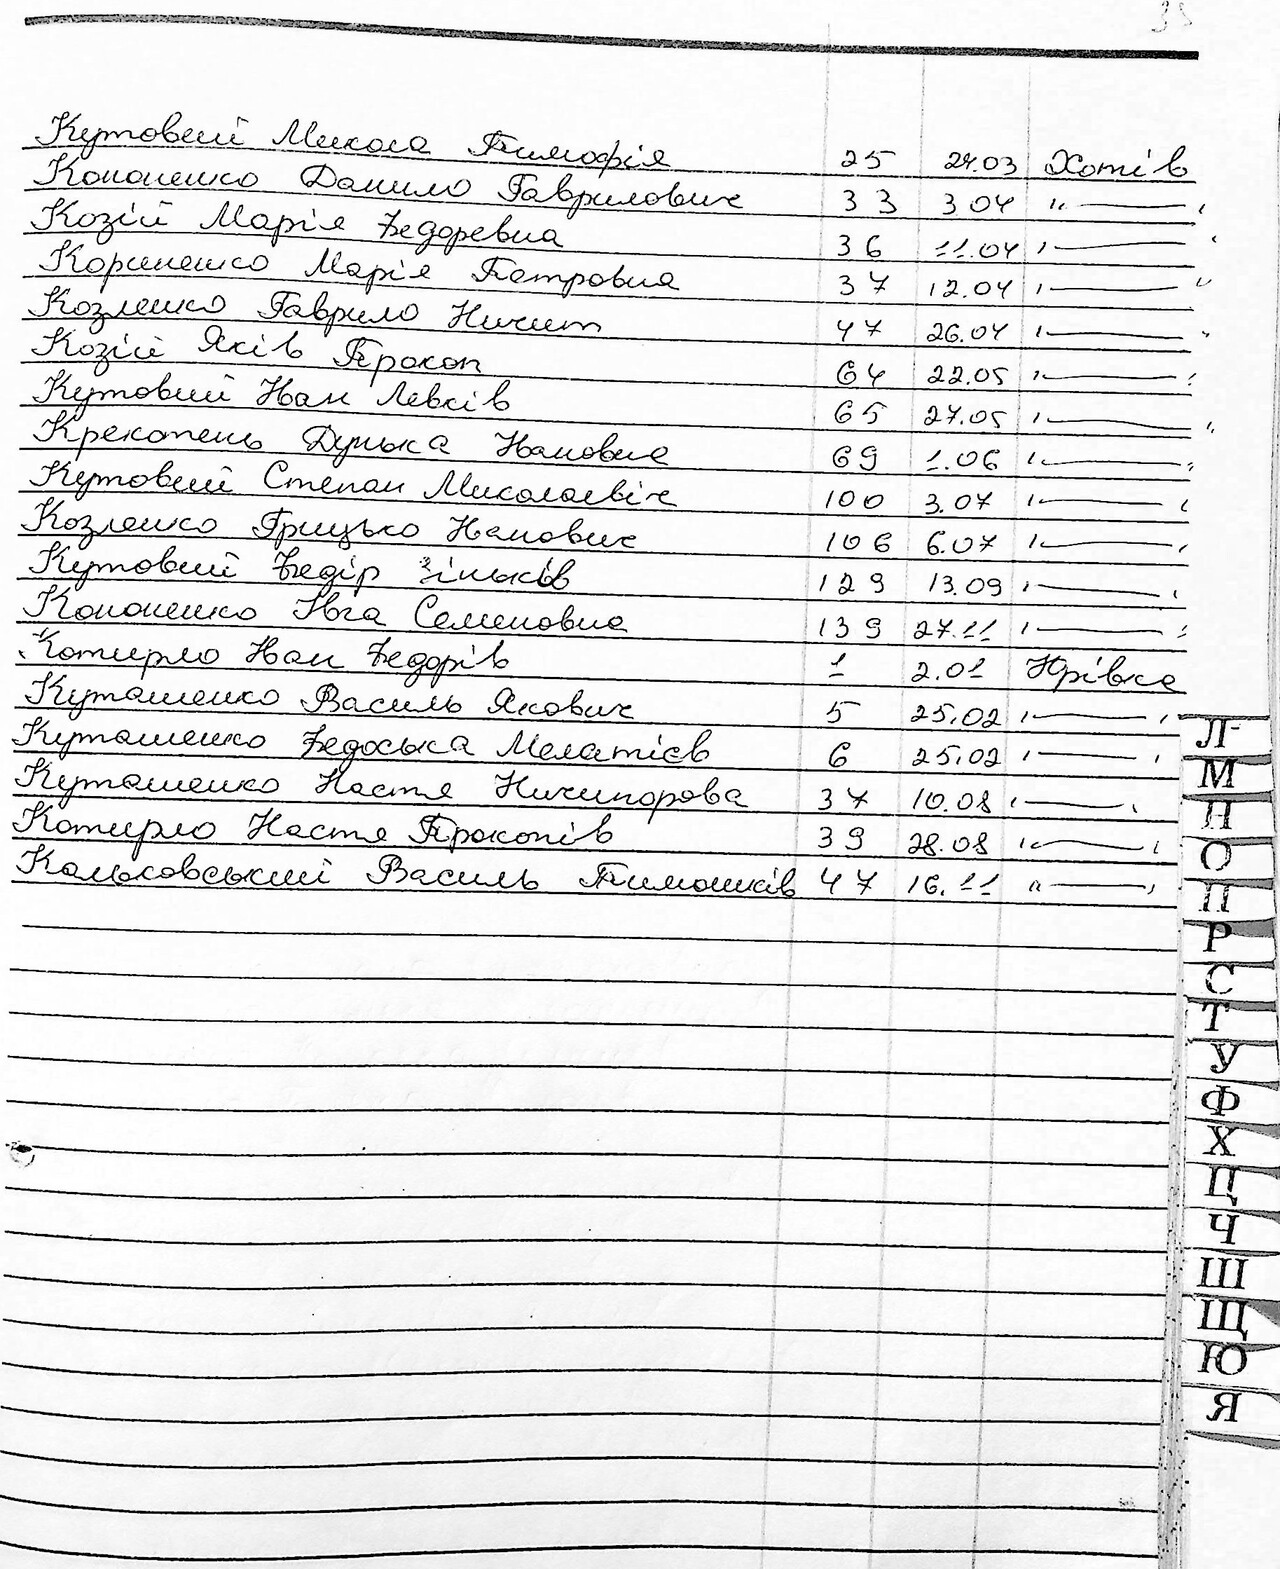 Кутовий Микола Тимофія 25 24.03 Хотів
Кононенко Данило Гаврилович 33 3.04 "—"
Козій Марія Федоревна 36 11.04 "—"
Корниенко Марія Петровна 37 12.04 "—"
Козленко Гаврило Ничип 47 26.04 "—"
Козій Яків Прокоп 64 22.05 "—"
Кутовий Іван Левків 65 27.05 "—"
Крекотень Дунька Ивановна 69 1.06 "—"
Кутовий Степан Миколаевіч 100 3.07 "—"
Козленко Грицько Иванович 106 6.07 "—"
Кутовий Федір Зіньків 129 13.09 "—"
Кононенко Ивга Семеновна 139 27.11 "—"
Котирло Иван Федорів 1 2.01 Юрівка
Куташенко Василь Якович 5 25.02 "—"
Куташенко Федоська Мелатієв 6 25.02 "—"
Куташенко Настя Ничипорова 37 10.08 "—"
Котирло Настя Прокопів 39 28.08 "—"
Кольковський Василь Тимошків 47 16.11 "—"
Л
М
Н
О
П
Р
С
Т
У
Ф
Х
Ц
Ч
Ш
Щ
Ю
Я